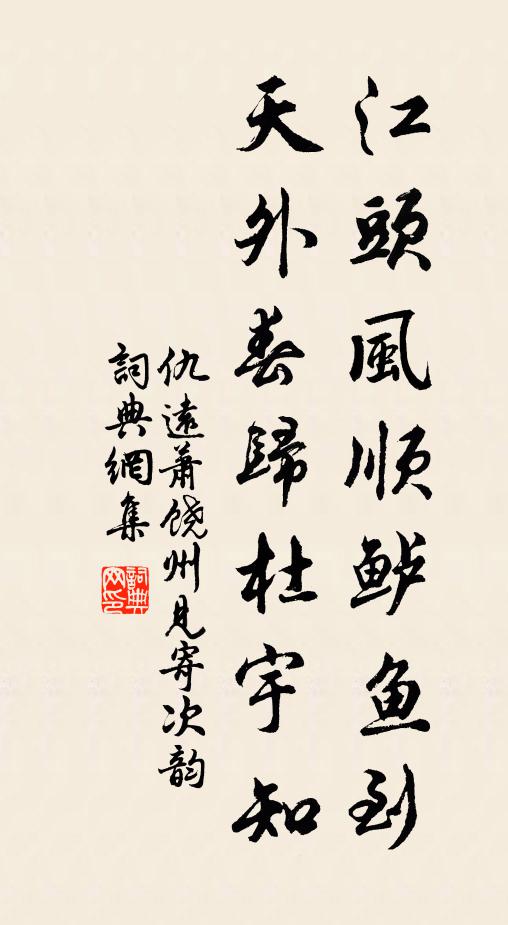 江頭風順鲈鱼到
天外春歸杜宇知
仇遠蕭饶州見寄次韵
詞典網集
詞典
网印